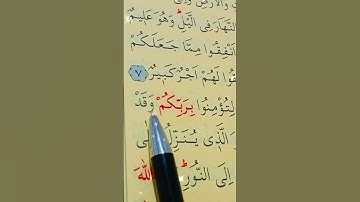 وَالْاَرْضِ
النَّهَارَ فِى الَّيْلِ وَهُوَ عَلٖيمٌ
اَنْفِقُوا مِمَّا جَعَلَكُمْ
لَهُمْ اَجْرٌ كَبٖيرٌ ٧
لِتُؤْمِنُوا بِرَبِّكُمْ وَقَدْ
الَّذٖى يُنَزِّلُ
اِلَى النُّورِ اللّٰهَ